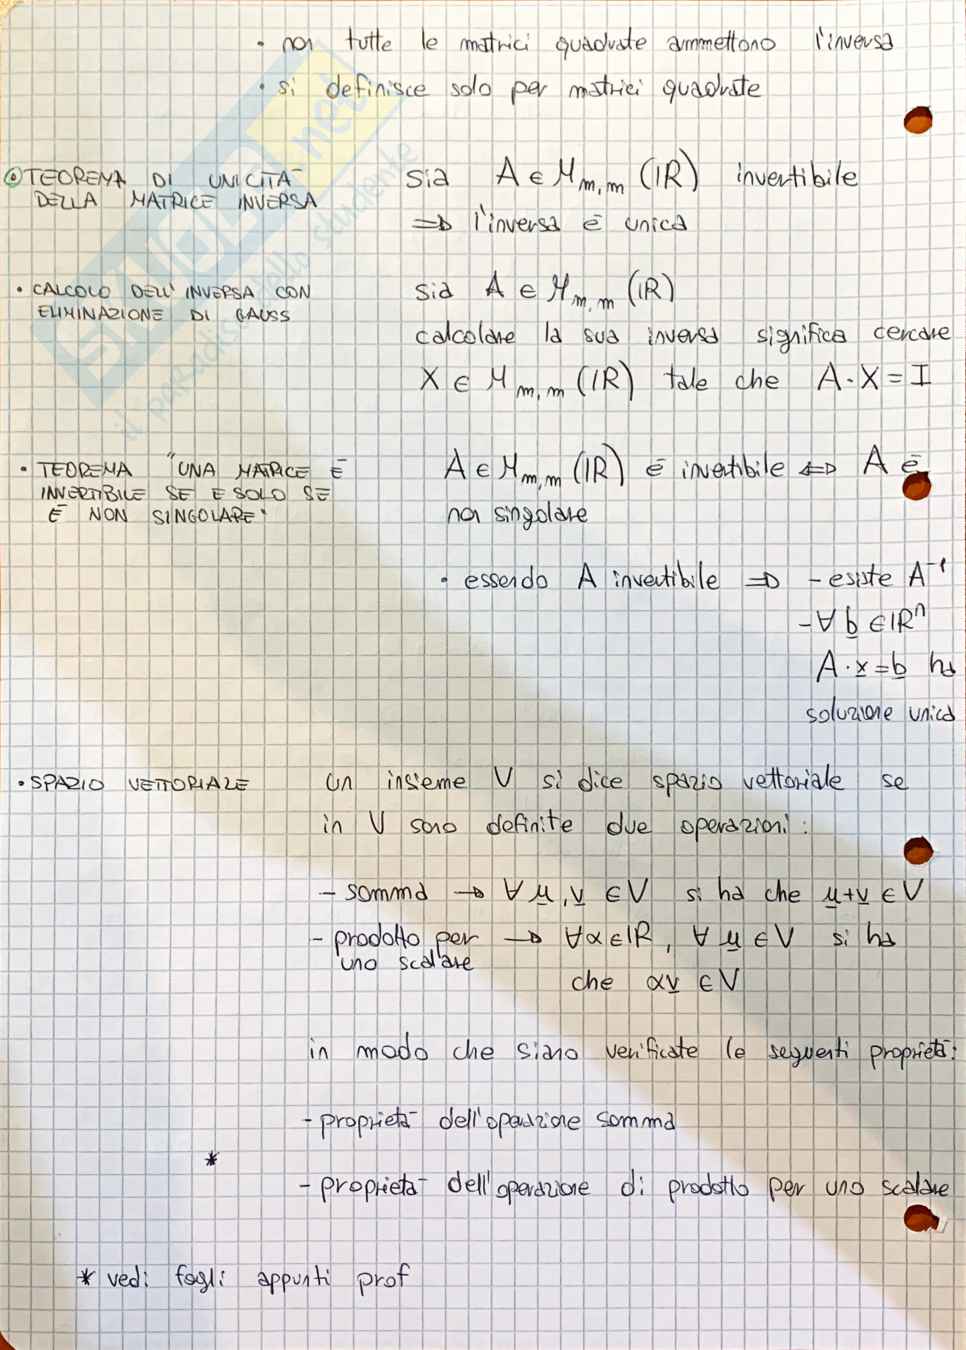 • non tutte le matrici quadrate ammettono l'inversa
• si definisce solo per matrici quadrate
TEOREMA DI UNICITÀ
DELLA MATRICE INVERSA
sia A ∈ M m,m (IR) invertibile
=> l'inversa è unica
• CALCOLO DELL'INVERSA CON
ELIMINAZIONE DI GAUSS
sia A ∈ M m,m (IR)
calcolare la sua inversa significa cercare
X ∈ M m,m (IR) tale che A·X=I
• TEOREMA "UNA MATRICE È
INVERTIBILE SE E SOLO SE
È NON SINGOLARE"
A ∈ M m,m (IR) è invertibile <=> A è
non singolare
• essendo A invertibile => - esiste A⁻¹
- ∀ b ∈ IRⁿ
A·x=b ha
soluzione unica
• SPAZIO VETTORIALE
un insieme V si dice spazio vettoriale se
in V sono definite due operazioni:
- somma → ∀ u, v ∈ V si ha che u+v ∈ V
- prodotto per → ∀α∈IR, ∀ u ∈ V si ha
uno scalare
che αv ∈ V
in modo che siano verificate le seguenti proprietà:
- proprietà dell'operazione somma
*
- proprietà dell'operazione di prodotto per uno scalare
* vedi fogli appunti prof
skuola.net
il paradiso dello studente